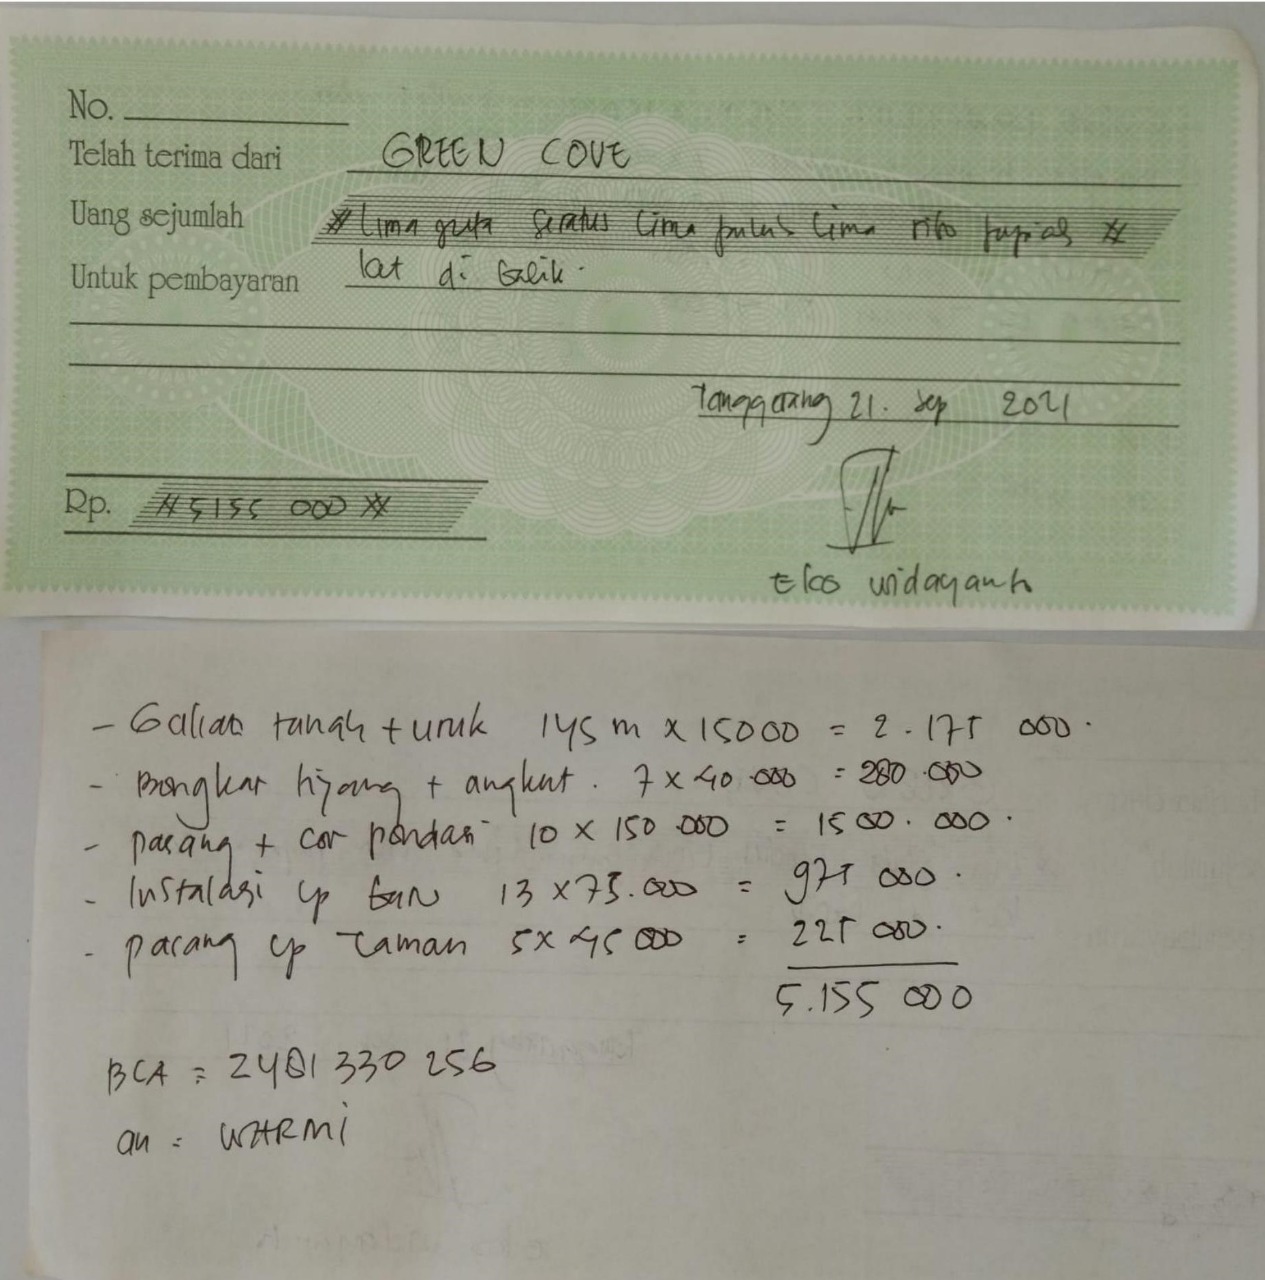 No.
Telah terima dari GREEN COVE
Uang sejumlah # Lima juta seratus lima puluh lima ribu rupiah #
Untuk pembayaran lat di balik.
Tanggerang 21. Sep 2021
Rp. # 5155 000 #
Eko widayanh
- Galian tanah + uruk 145 m x 15000 = 2.175 000.
- Bongkar tiyang + angkut. 7 x 40.000 = 280.000
- pasang + cor pondasi 10 x 150.000 = 1500.000.
- Instalasi Lp 13 x 75.000 = 975 000.
- pasang Lp Taman 5 x 45 000 = 225 000.
5.155 000
BCA = 330 256
an = WARMi